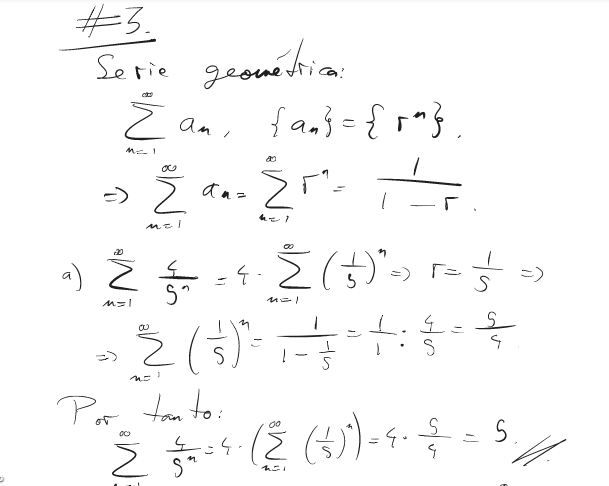 #3.
Serie geométrica:
∑_{n=1}^{∞} a_n, {a_n} = {r^n}.
=> ∑_{n=1}^{∞} a_n = ∑_{n=1}^{∞} r^n = 1/(1-r).
a) ∑_{n=1}^{∞} 4/5^n = 4·∑_{n=1}^{∞} (1/5)^n => r = 1/5 =>
=> ∑_{n=1}^{∞} (1/5)^n = 1/(1-1/5) = 1/1 : 4/5 = 5/4
Por tanto:
∑_{n=1}^{∞} 4/5^n = 4·(∑_{n=1}^{∞} (1/5)^n) = 4·5/4 = 5.